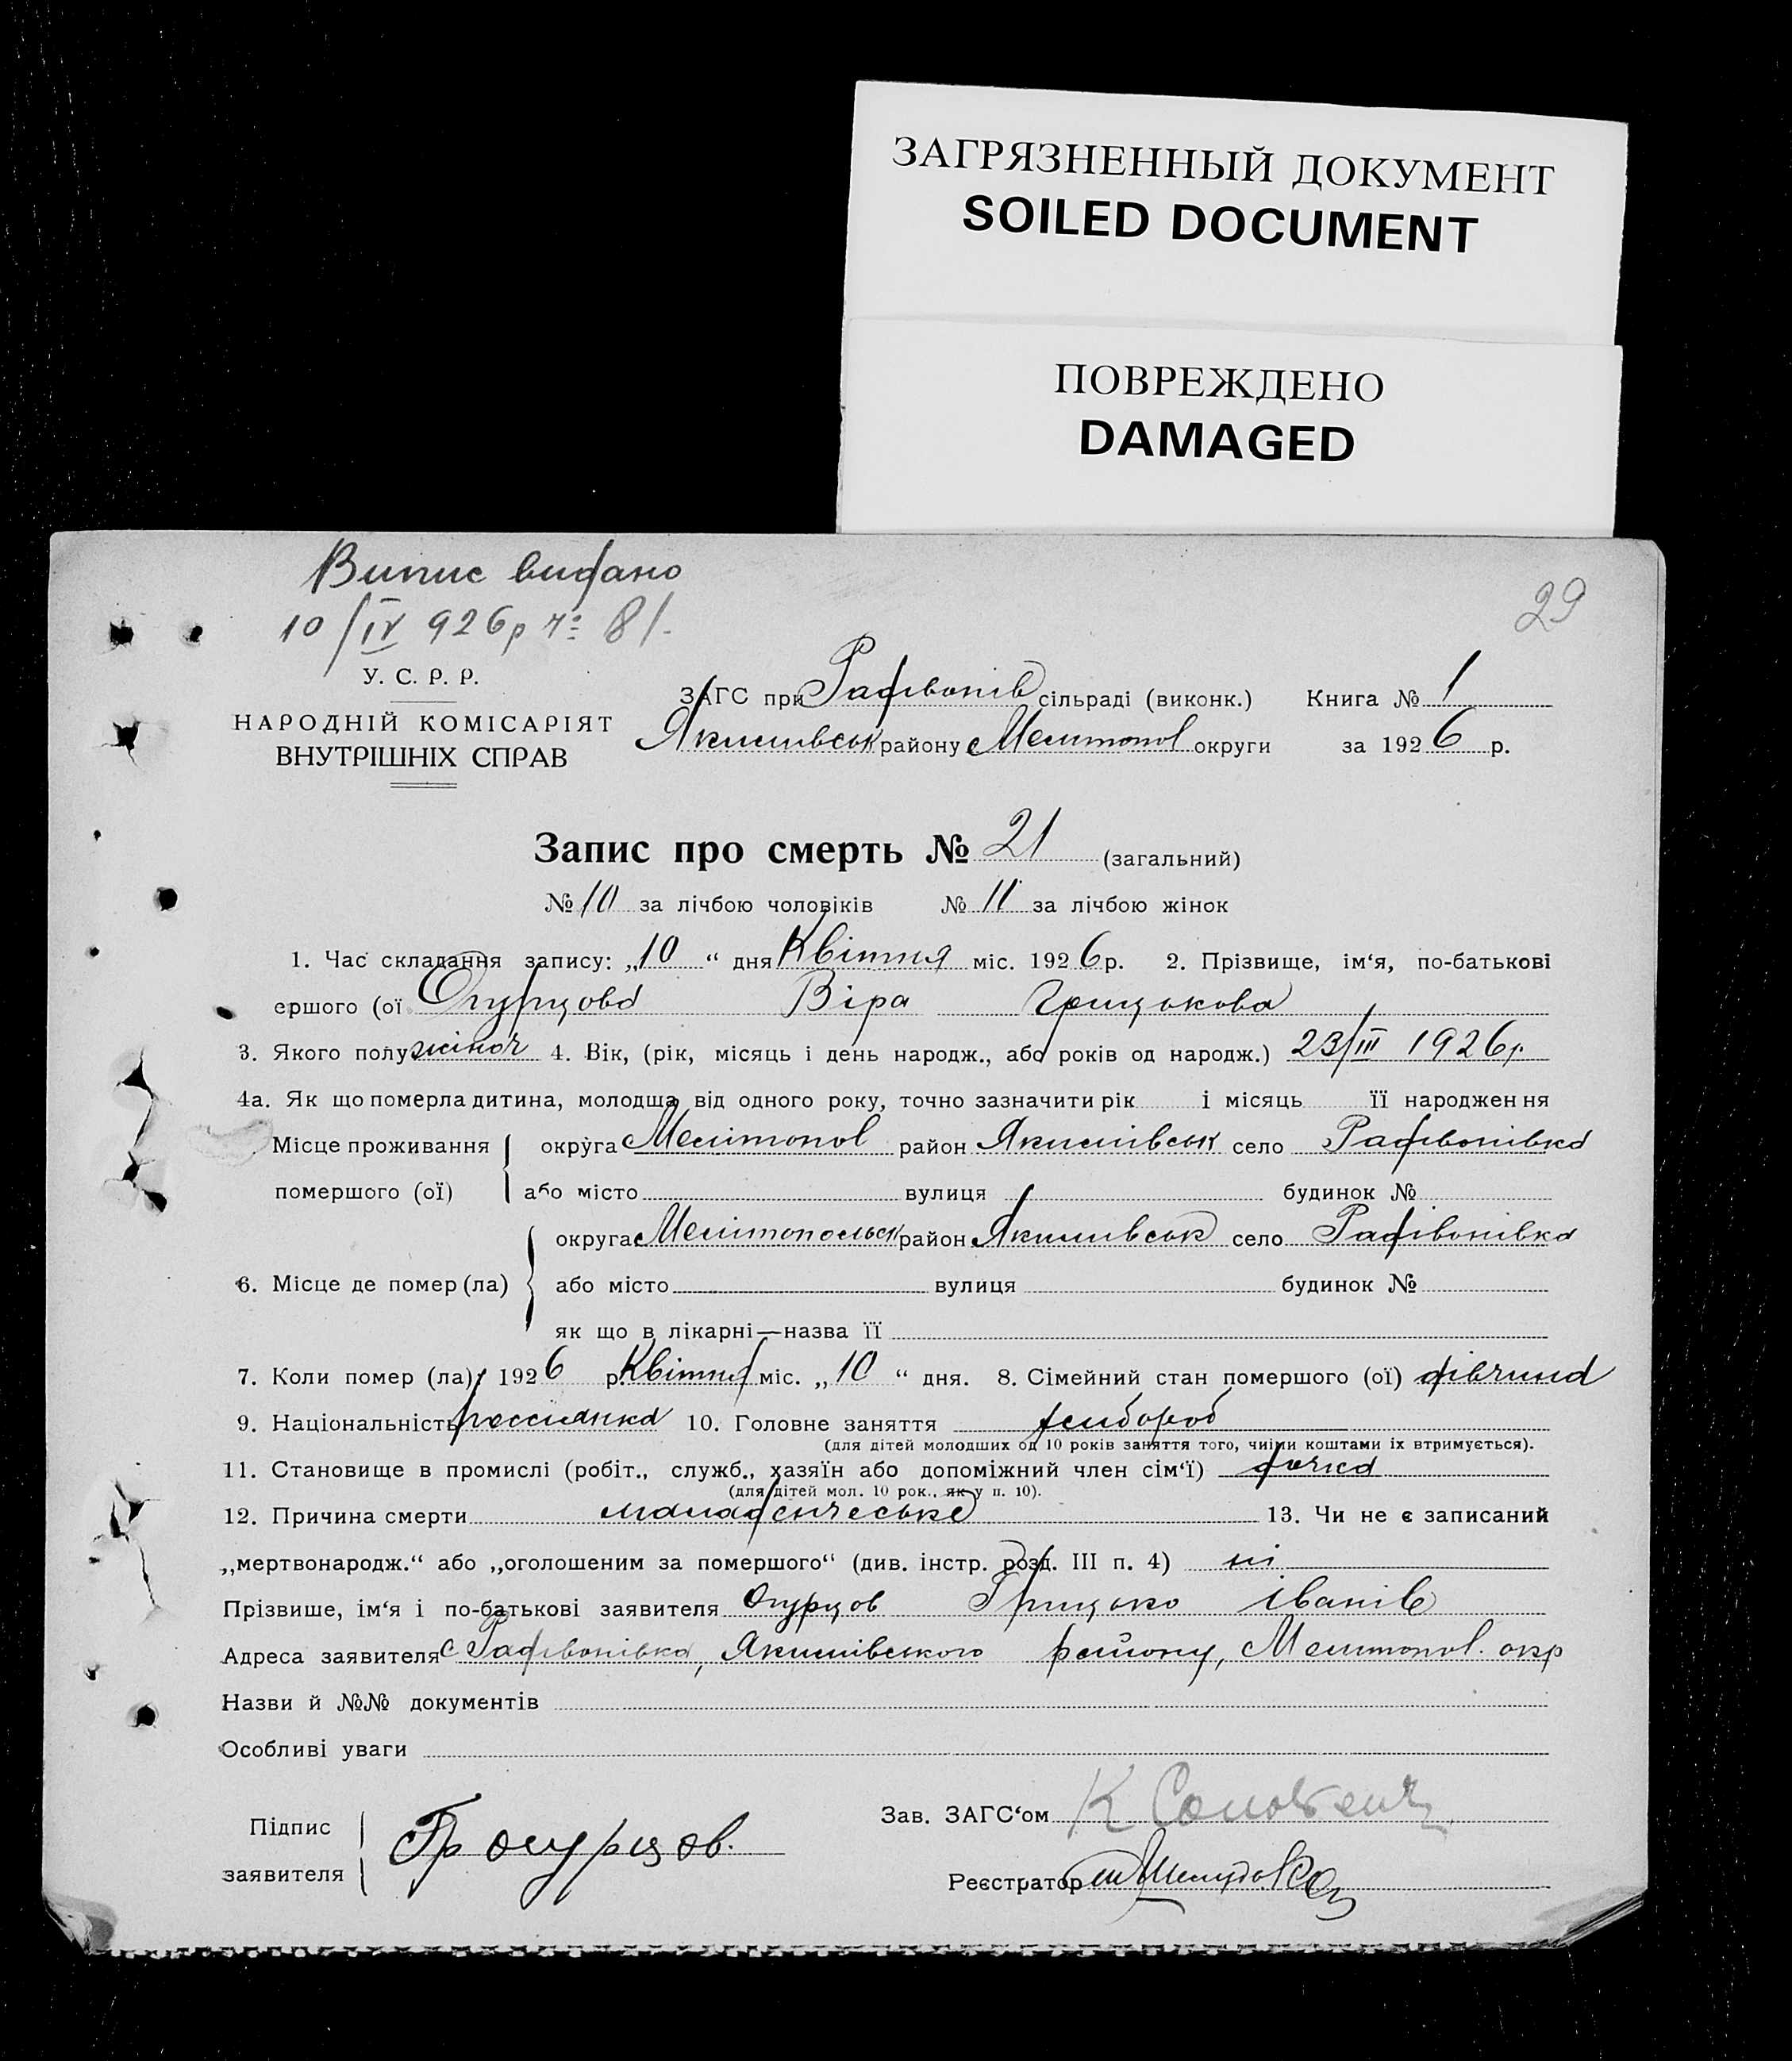 ЗАГРЯЗНЕННЫЙ ДОКУМЕНТ
SOILED DOCUMENT
ПОВРЕЖДЕНО
DAMAGED
Випис видано
10/IV 926р № 81.
29
У. С. Р. Р.
НАРОДНІЙ КОМІСАРІЯТ
ВНУТРІШНІХ СПРАВ
ЗАГС при Радівонів сільраді (виконк.) Книга № 1
Якимівськ району Мелитопол округи за 1926 р.
Запис про смерть № 21 (загальний)
№ 10 за лічбою чоловіків № 11 за лічбою жінок
1. Час складання запису: „10“ дня Квітня міс. 1926 р. 2. Прізвище, ім‘я, по-батькові
ершого (ої Огурцова Віра Грицькова
3. Якого полу жіноч 4. Вік, (рік, місяць і день народж., або років од народж.) 23/III 1926р.
4а. Як що померла дитина, молодша від одного року, точно зазначити рік і місяць її народження
Місце проживання округа Мелітопол район Якимівськ село Радівонівка
помершого (ої) або місто вулиця будинок №
округа Мелітопольськ район Якимівськ село Радівонівка
6. Місце де помер (ла) або місто вулиця будинок №
як що в лікарні—назва її
7. Коли помер (ла) 1926 р. Квітня міс. „10“ дня. 8. Сімейний стан помершого (ої) дівчина
9. Національність россиянка 10. Головне заняття хлибороб
(для дітей молодших од 10 років заняття того, чиїми коштами їх втримується).
11. Становище в промислі (робіт., служб., хазяїн або допоміжний член сім‘ї) дочка
(для дітей мол. 10 рок., як у п. 10).
12. Причина смерти маладенческе 13. Чи не є записаний
„мертвонародж.“ або „оголошеним за помершого“ (див. інстр. розд. III п. 4) ні
Прізвише, ім‘я і по-батькові заявителя Огурцов Грицько Іванів
Адреса заявителя с Радівонівка, Якимівського району, Мелитопол. окр
Назви й №№ документів
Особливі уваги
Підпис
заявителя
Гр Огурцов.
Зав. ЗАГС‘ом
Реєстратор